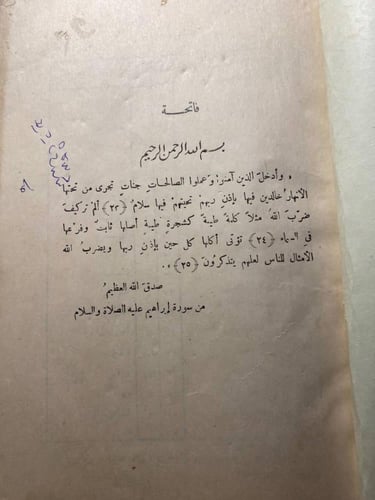 فاتحـــة
بسم الله الرحمن الرحيم
« وأدخل الذين آمنوا وعملوا الصالحات جنات تجرى من تحتها
الأنهار خالدين فيها بإذن ربهم تحيتهم فيها سلام (٢٣) ألم تر كيف
ضرب الله مثلاً كلمة طيبة كشجرة طيبة أصلها ثابت وفرعها
فى السماء (٢٤) تؤتى أكلها كل حين بإذن ربها ويضرب الله
الأمثال للناس لعلهم يتذكرون (٢٥) » .
صدق الله العظيم
من سورة إبراهيم عليه الصلاة والسلام